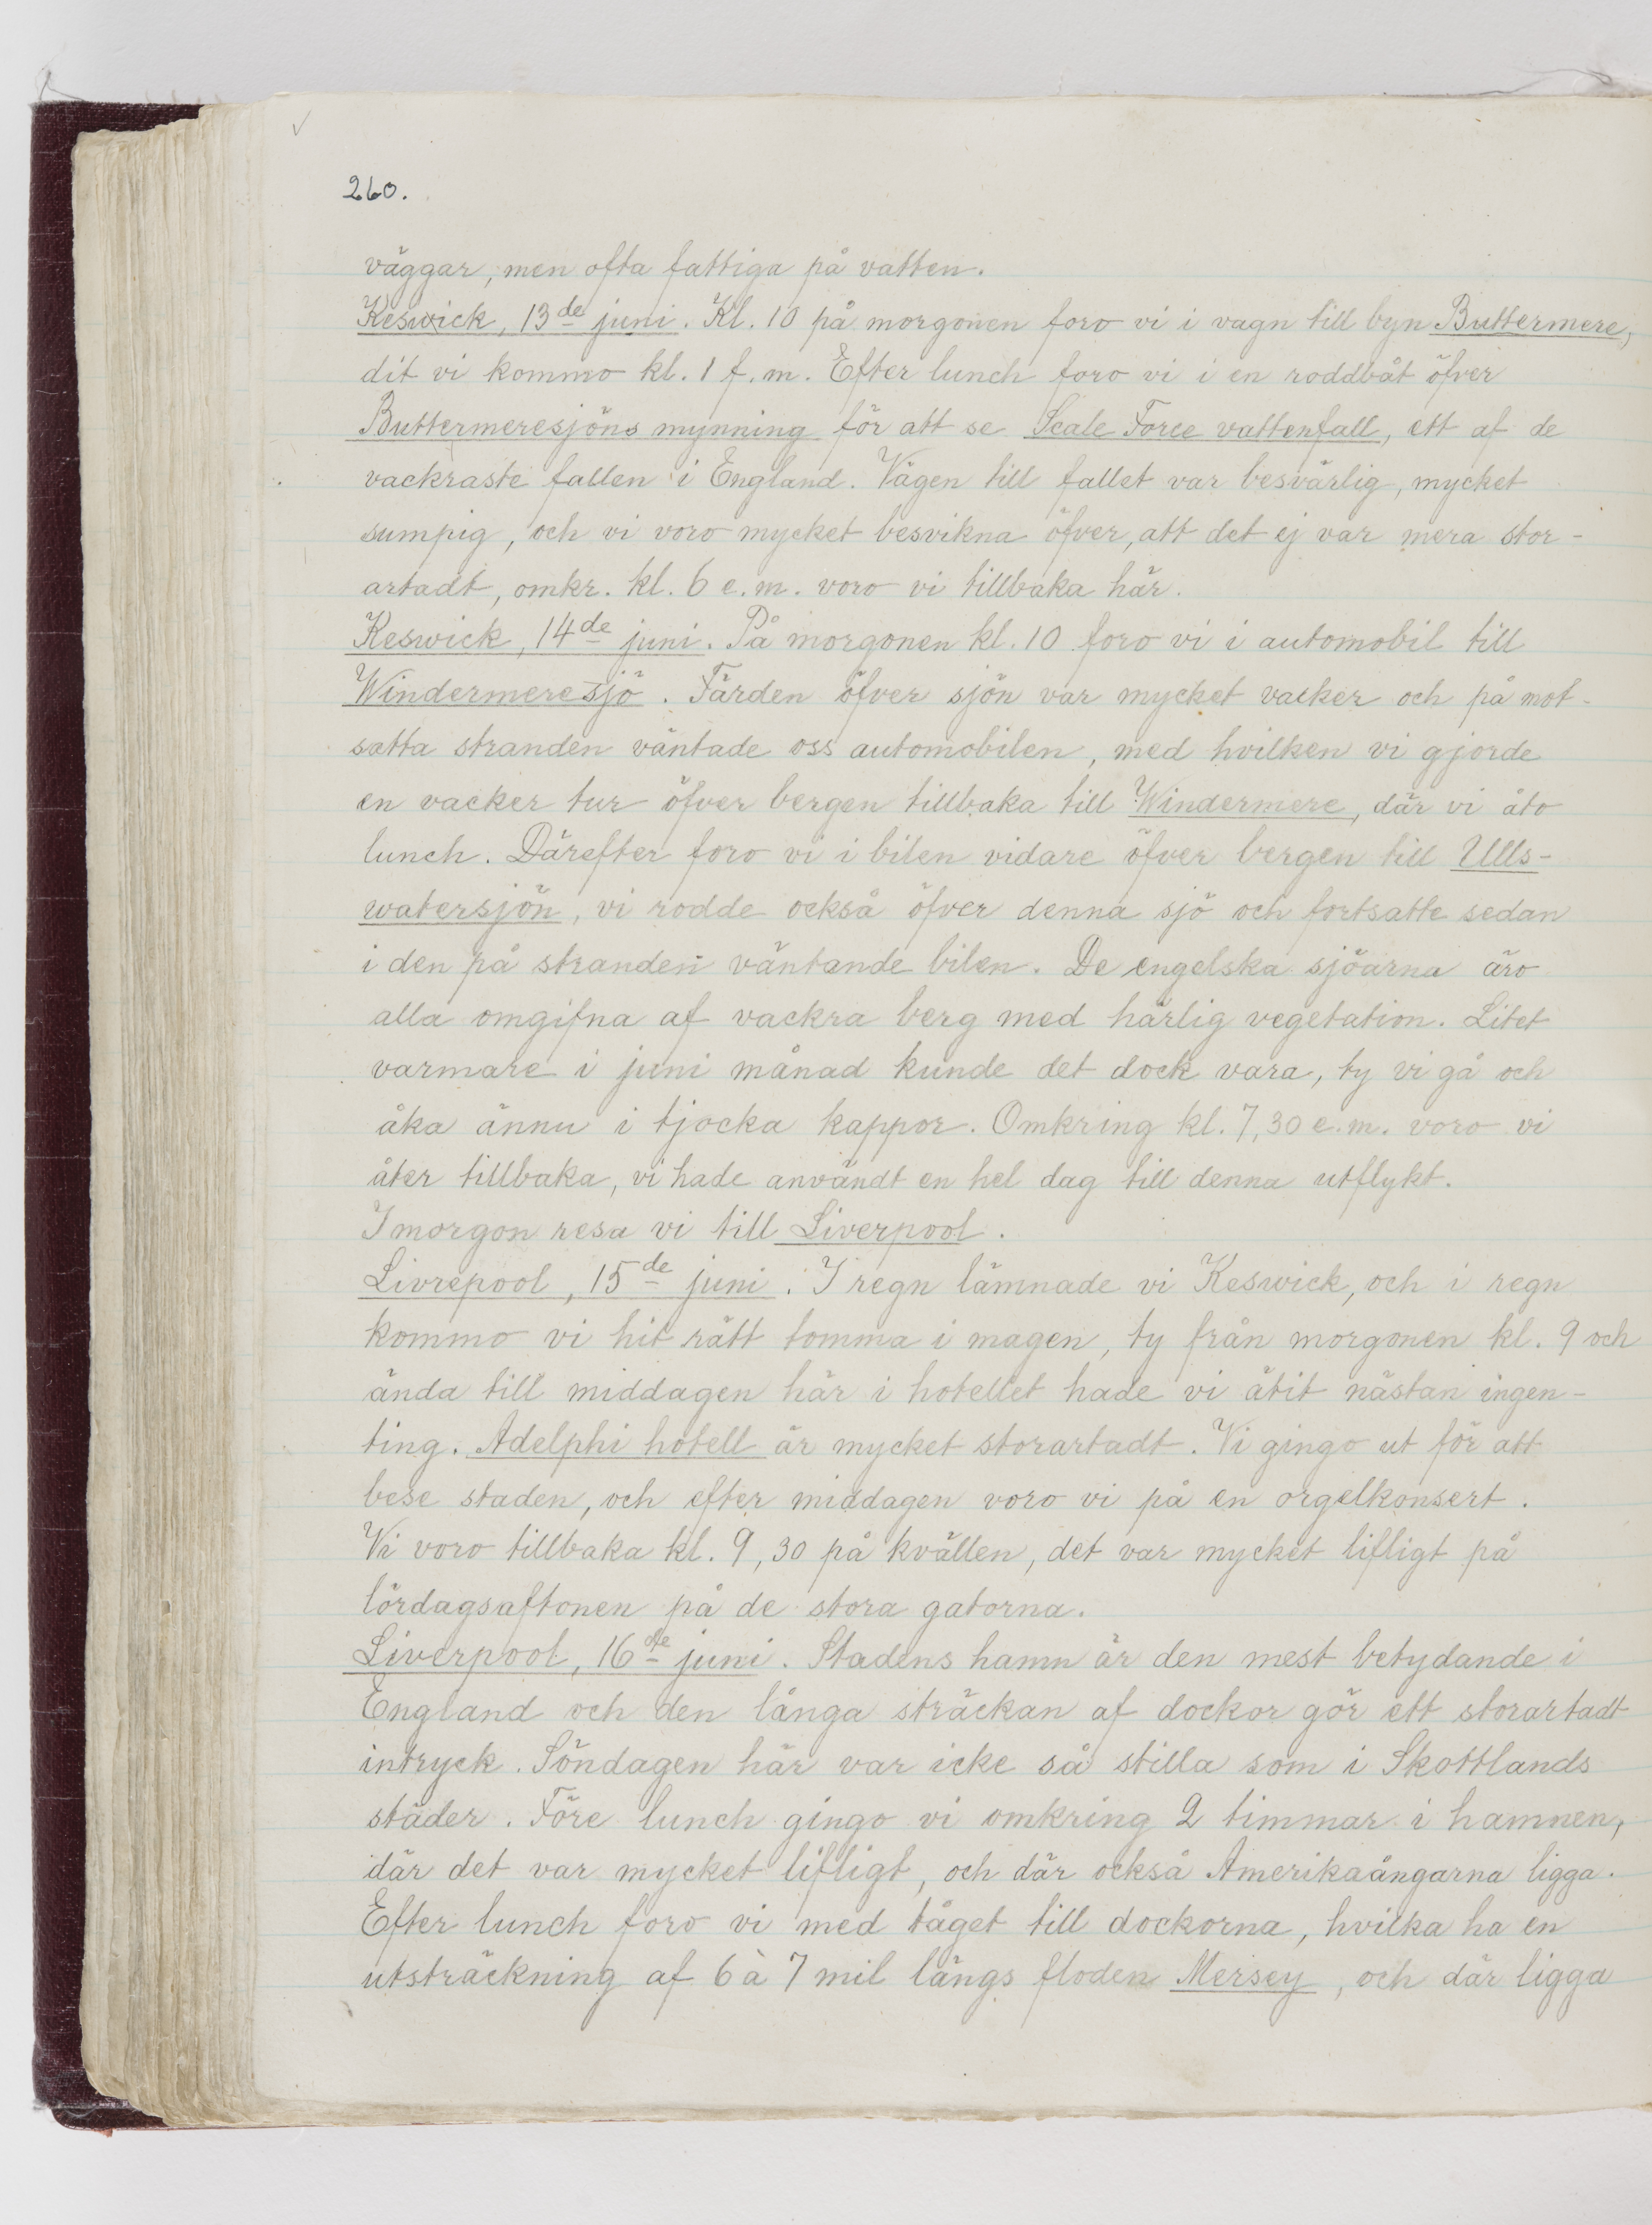 260.
väggar, men ofta fattiga på vatten.
Keswick, 13de juni. Kl. 10 på morgonen foro vi i vagn till byn Buttermere,
dit vi kommo kl. 1 f.m. Efter lunch foro vi i en roddbåt öfver
Buttermeresjöns mynning för att se Scale Force vattenfall, ett af de
vackraste fallen i England. Vägen till fallet var besvärlig, mycket
sumpig, och vi voro mycket besvikna öfver, att det ej var mera stor-
artadt, omkr. kl. 6 e.m. voro vi tillbaka här.
Keswick, 14de juni. På morgonen kl. 10 foro vi i automobil till
Windermere-sjö. Färden öfver sjön var mycket vacker och på mot-
satta stranden väntade oss automobilen, med hvilken vi gjorde
en vacker tur öfver bergen tillbaka till Windermere, där vi åto
lunch. Därefter foro vi i bilen vidare öfver bergen till Ulls-
watersjön, vi rodde också öfver denna sjö och fortsatte sedan
i den på stranden väntande bilen. De engelska sjöarna äro
alla omgifna af vackra berg med härlig vegetation. Litet
varmare i juni månad kunde det dock vara, ty vi gå och
åka ännu i tjocka kappor. Omkring kl. 7,30 e.m. voro vi
åter tillbaka, vi hade användt en hel dag till denna utflykt.
I morgon resa vi till Liverpool.
Livrepool, 15de juni. I regn lämnade vi Keswick, och i regn
kommo vi hit rätt tomma i magen, ty från morgonen kl. 9 och
ända till middagen här i hotellet hade vi ätit nästan ingen-
ting. Adelphi hotell är mycket storartadt. Vi gingo ut för att
bese staden, och efter middagen voro vi på en orgelkonsert.
Vi voro tillbaka kl. 9,30 på kvällen, det var mycket lifligt på
lördagsaftonen på de stora gatorna.
Liverpool, 16de juni. Stadens hamn är den mest betydande i
England och den långa sträckan af dockor gör ett storartadt
intryck. Söndagen här var icke så stilla som i Skottlands
städer. Före lunch gingo vi omkring 2 timmar i hamnen,
där det var mycket lifligt, och där också Amerikaångarna ligga.
Efter lunch foro vi med tåget till dockorna, hvilka ha en
utsträckning af 6 à 7 mil längs floden Mersey, och där ligga